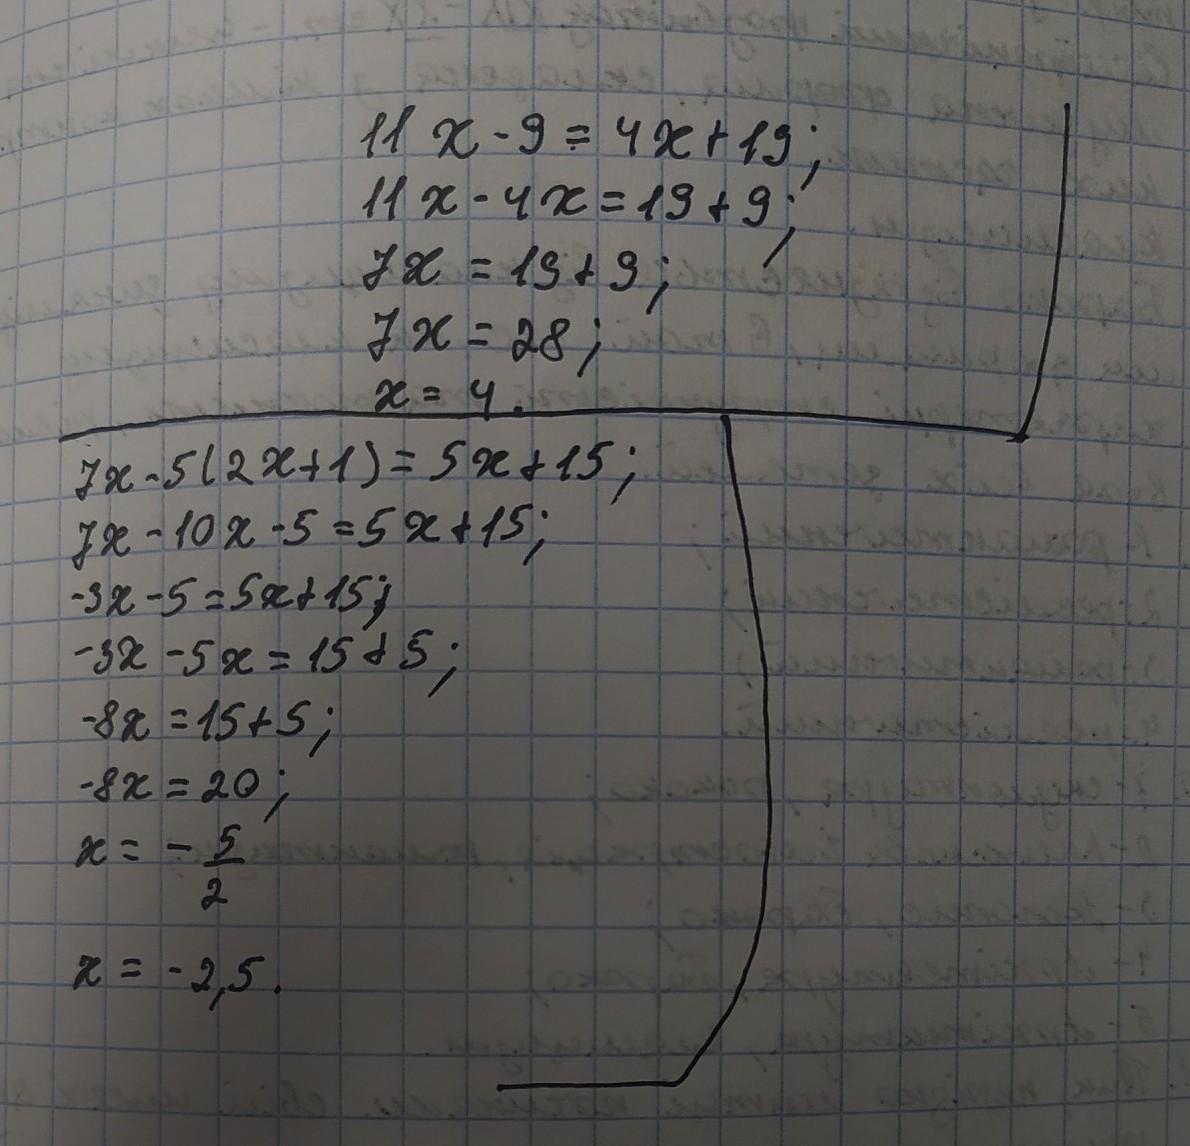 11x-9=4x+19;
11x-4x=19+9;
7x=19+9;
7x=28;
x=4.
7x-5(2x+1)=5x+15;
7x-10x-5=5x+15;
-3x-5=5x+15;
-3x-5x=15+5;
-8x=15+5;
-8x=20;
x=-5/2
x=-2,5.